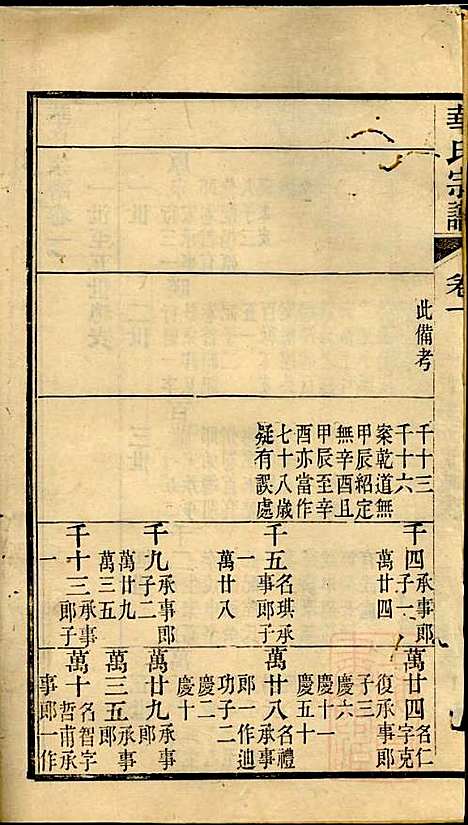 華氏宗譜
卷一
此備考
千十三
千十六
案乾道無
甲辰紹定
無辛酉且
甲辰至辛
酉亦當作
七十八歲
疑有誤處
千四承事郎
子一
萬廿四
千五名琪承
事郎子
一
萬廿八
千九承事郎
子二
萬廿九
萬三五
千十三承事
郎子
一
萬廿四名仁
字克
復承事郎
子三
慶六
慶十一
慶五十
萬廿八名禮
承事
郎一作迪
功子二
慶二
慶十
萬廿九承事
郎
萬三五承事
郎
萬十名智字
哲甫承
事郎一作